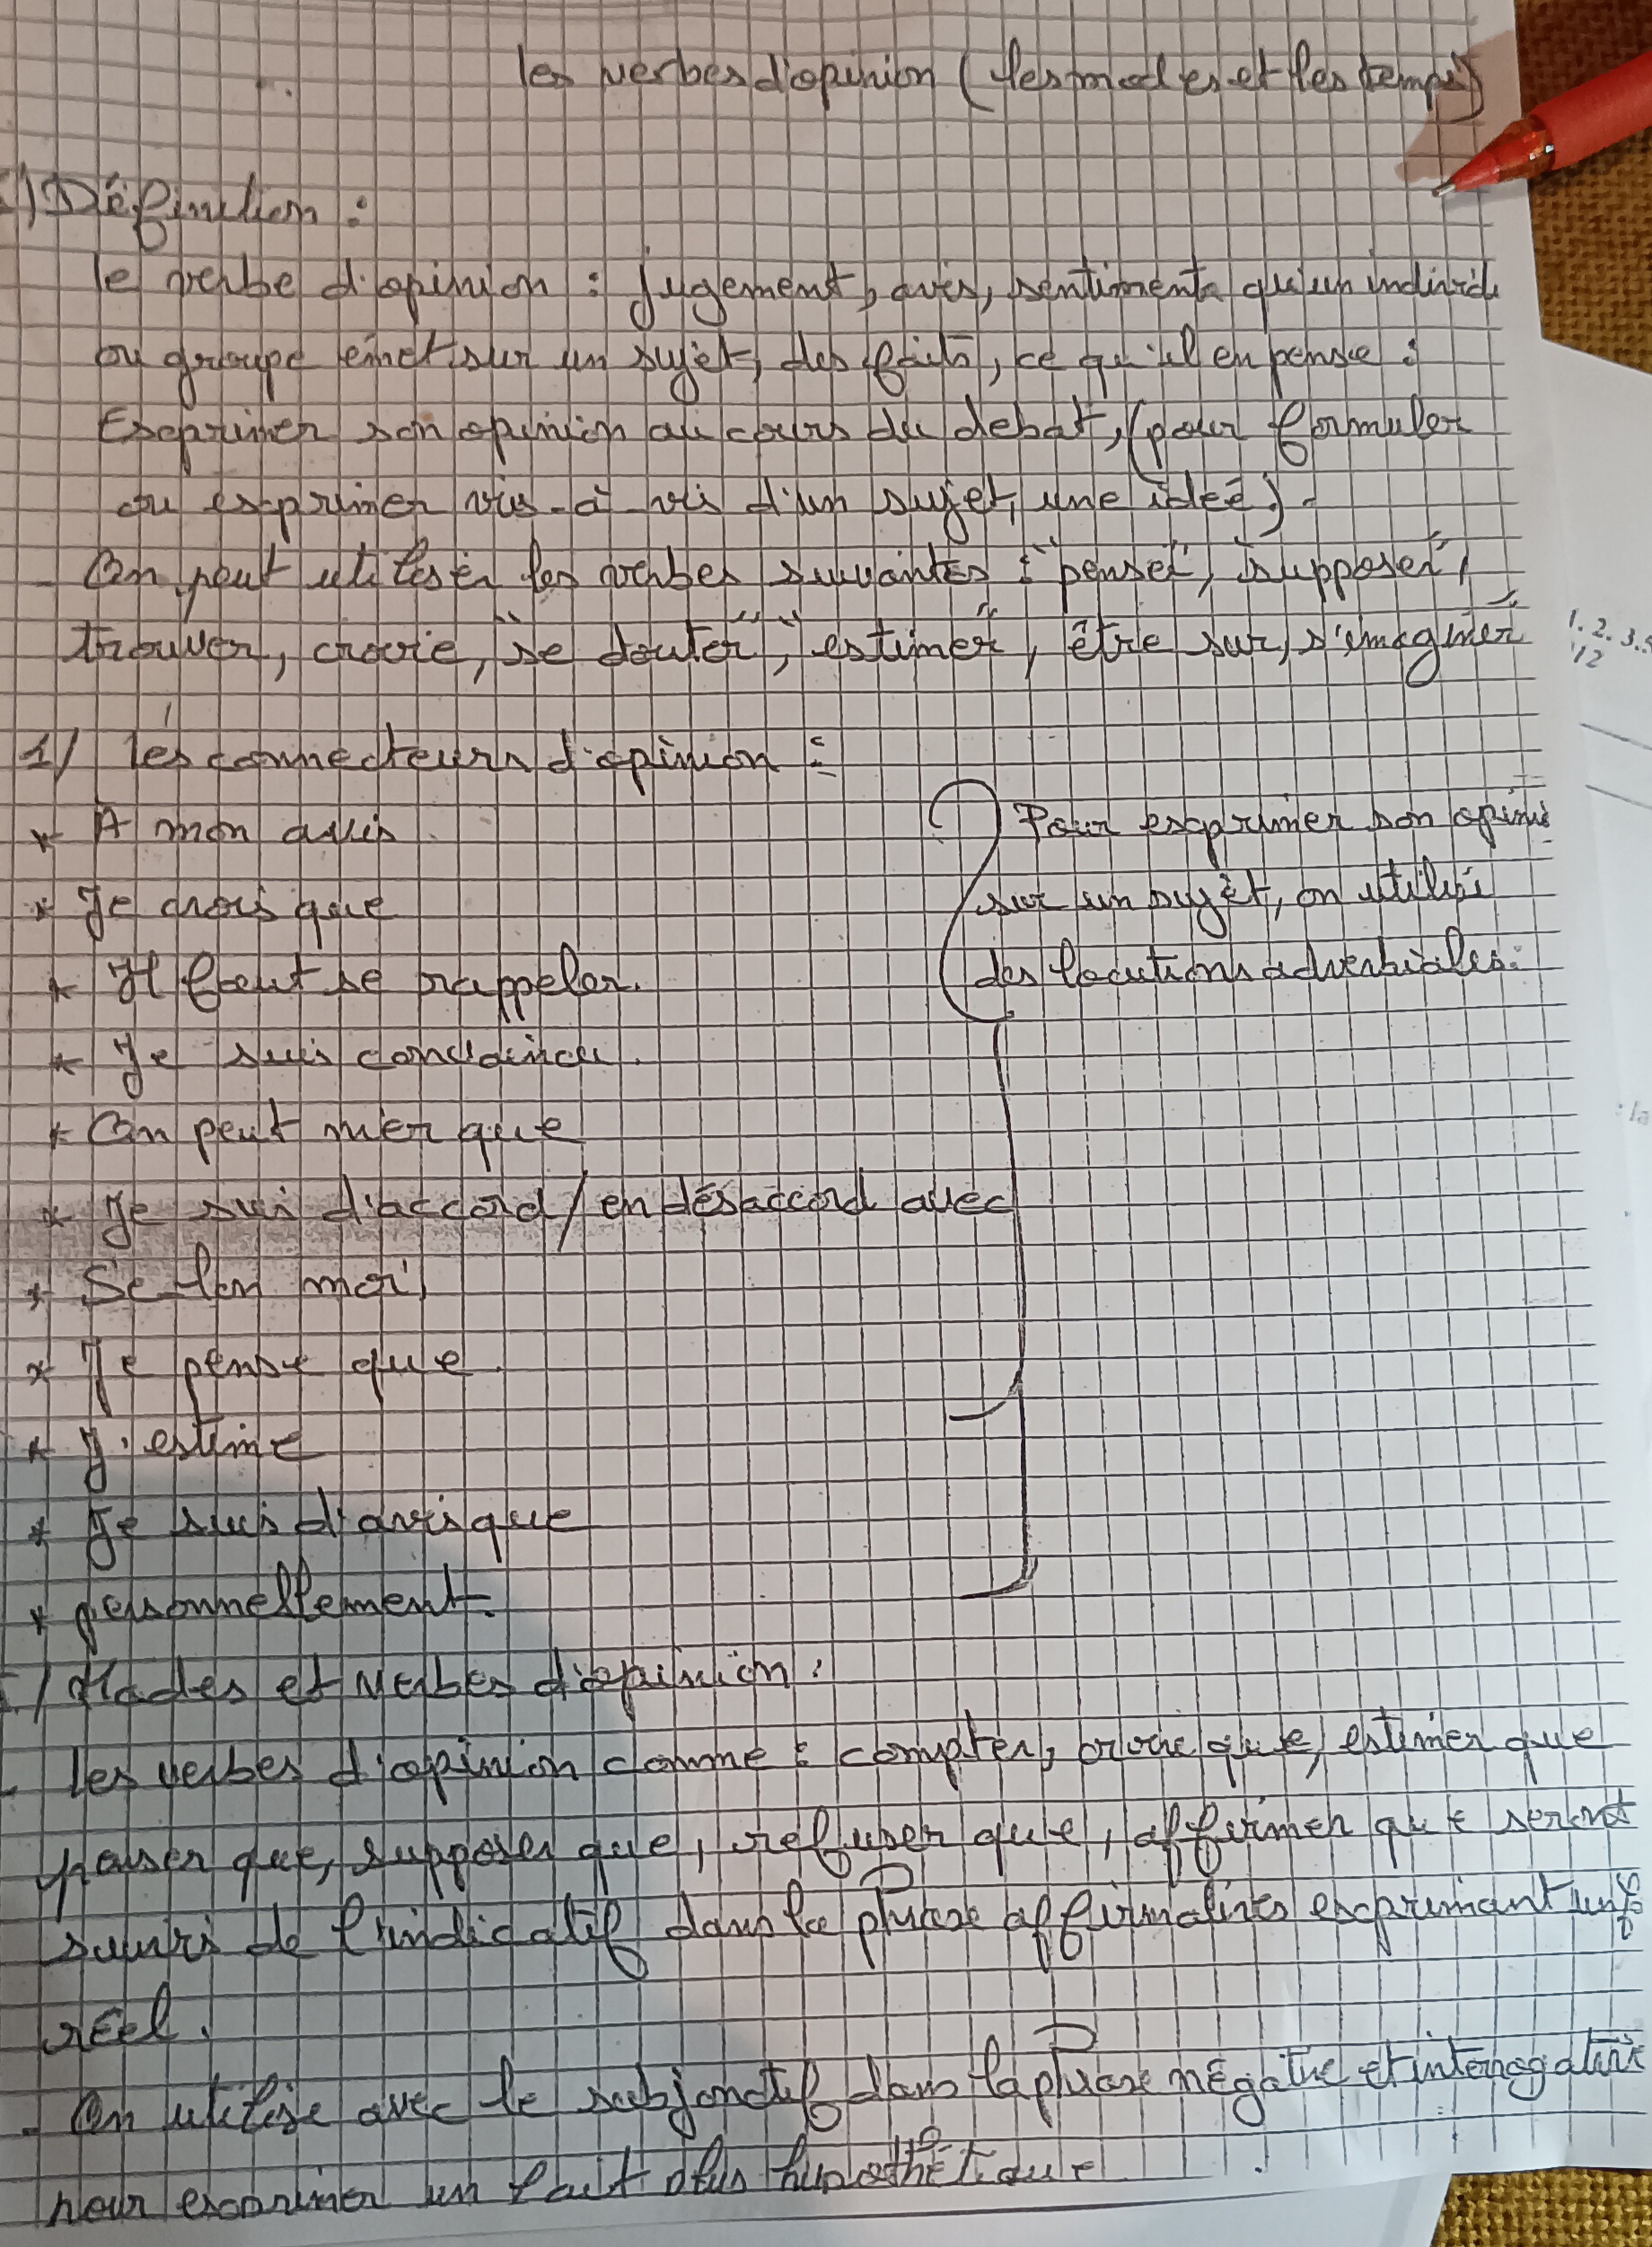 les verbes d'opinion (les modes et les temps)
) Définition :
le verbe d'opinion : jugement, avis, sentiments qu'un individ
ou groupe émet sur un sujet, des faits, ce qu'il en pense :
Exprimer son opinion au cours du debat, (pour formuler
ou exprimer vis-à-vis d'un sujet, une ideé).
- On peut utiliser les verbes suivantes : "penser", "supposer",
trouver, croire, "se douter", "estimer", être sur, s'imaginer
1/ les connecteurs d'opinion :
* A mon avis.
* Je crois que
* Il faut se rappeler.
* Je suis convaincu.
* On peut nier que
* Je suis d'accord / en désaccord avec
* Selon moi,
* Je pense que.
* J'estime
* Je suis d'avis que
* personnellement.
Pour exprimer son opini
sur un sujet, on utilise
des locutions adverbiales.
/ Modes et verbes d'opinion :
- les verbes d'opinion comme : compter, croire que, estimer que
penser que, supposer que, refuser que, affirmer que seront
suivis de l'indicatif dans la phrase affirmatives exprimant un
réel.
- On utilise avec le subjonctif dans la phrase négative et interrogative
pour exprimer un fait plus hypothétique
1. 2. 3.
12
: la